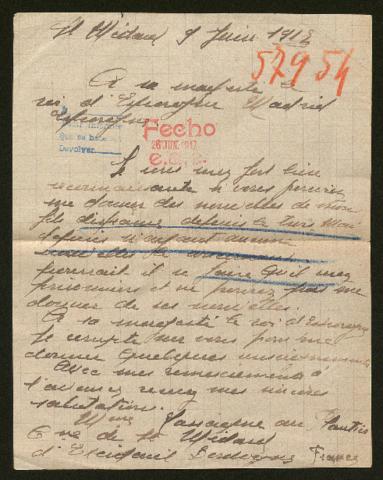 St Médard 9 Juin 1917
52954
A sa majesté le
roi d'Espagne Madrid
Espagne
que se ha
Devolver.
Fecho
26 JUN. 1917
Je vous serez fort bien
reconnaissante si vous pourriez
me donner des nouvelles de mon
fils disparu depuis le trois Mai
depuis n'ayant aucune
nouvelles
pourrait il se faire qu'il soiz
prisonniers et ne pouvez pas me
donner de ses nouvelles.
A sa majesté le roi d'Espagne
Je compte sur vous pour me
donner quelques renseignements
Avec mes remerciements à
l'avance recevez mes sincères
salutation.
Mme Lassaigne au Plantier
Cne de St Médard
d'Excideuil Dordogne France